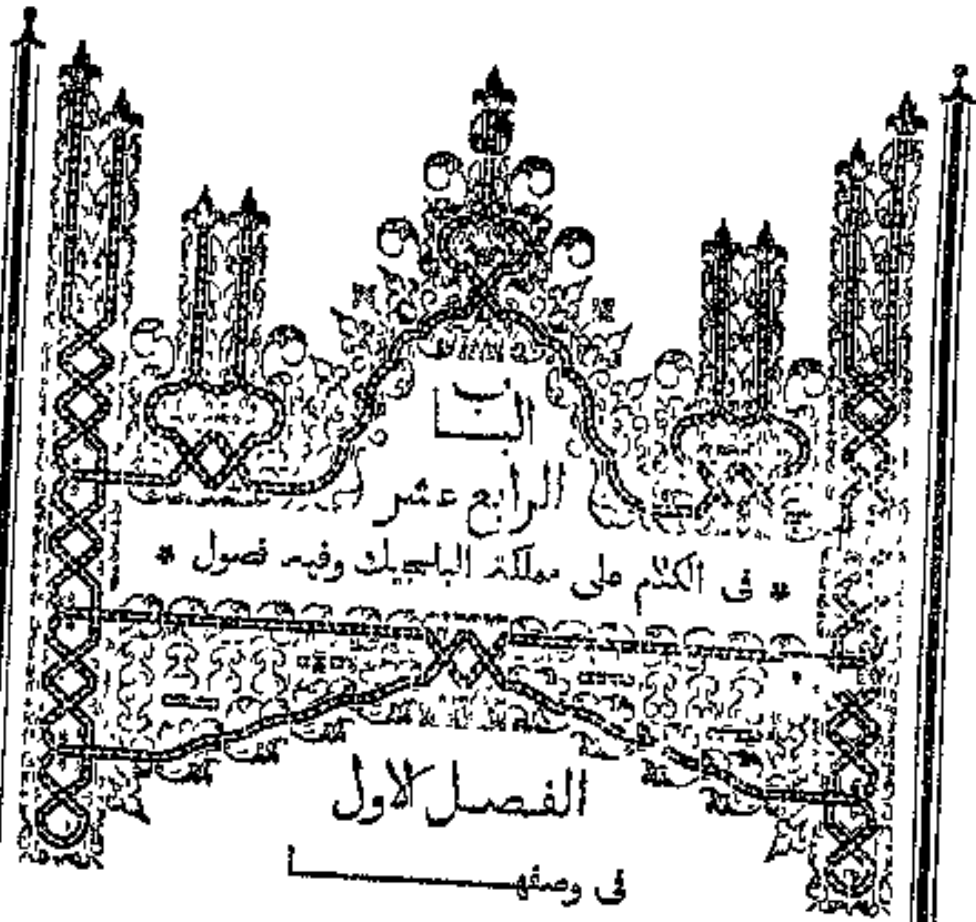 الباب
الرابع عشر
* فى الكلام على مملكة البلجيك وفيه فصول *
الفصل الاول
فى وصفها